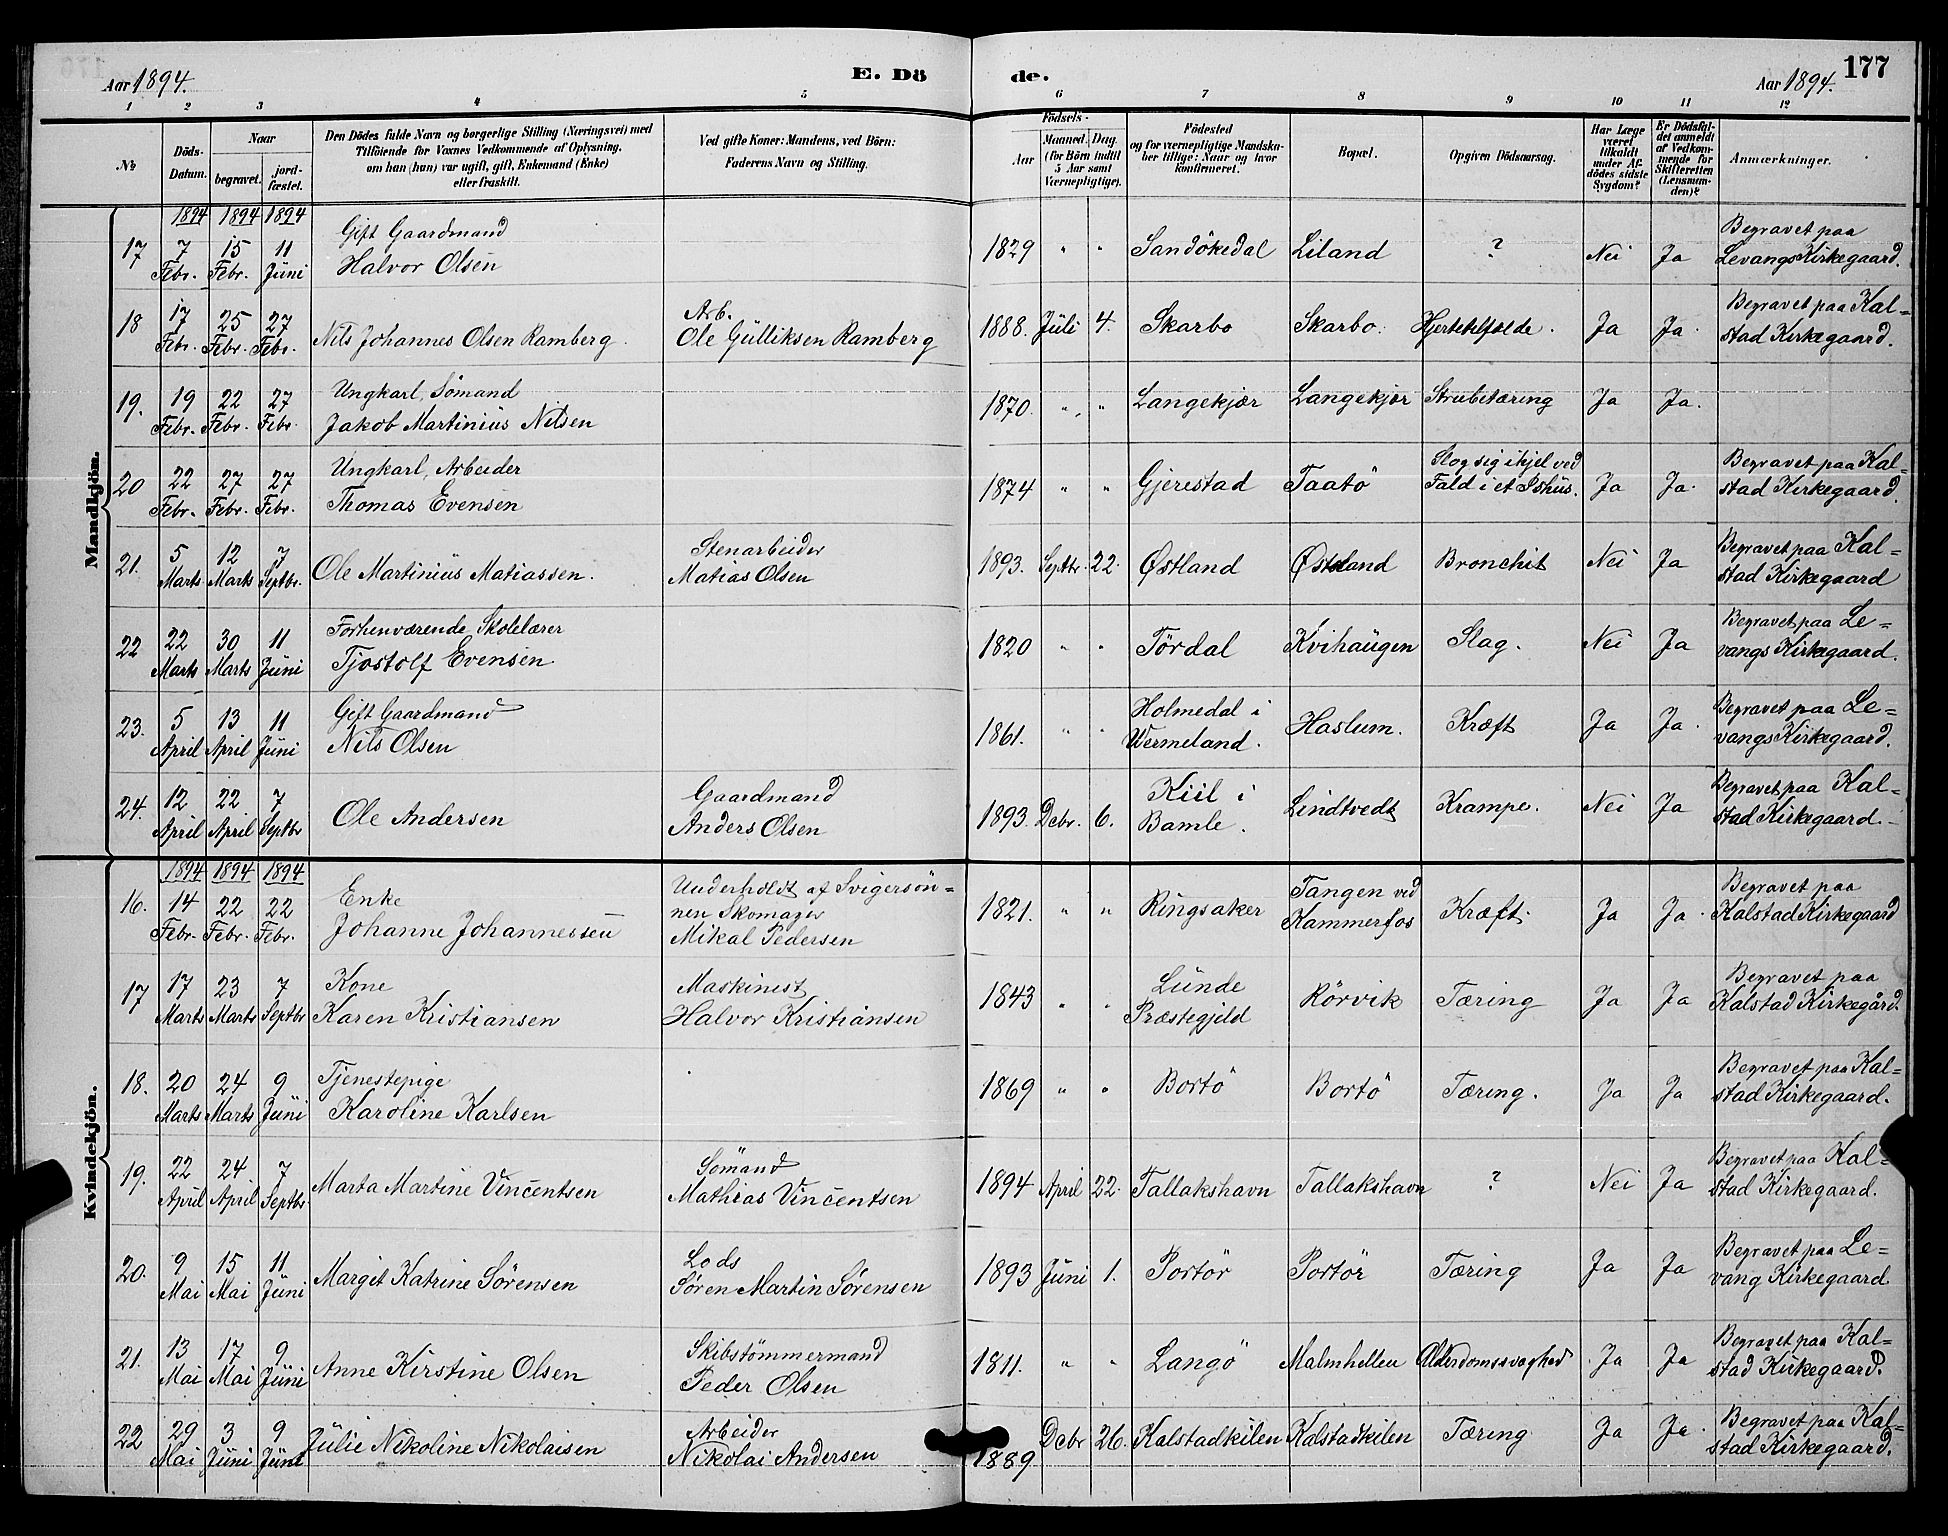 Aar 1894.
E. Dö
de.
Aar 1894.
177
1 2 3 4 5 6 7 8 9 10 11 12
No
Döds-Datum.
Naar
begravet.
jord-fæstet.
Den Dödes fulde Navn og borgerlige Stilling (Næringsvei) med
Tilföiende for Voxnes Vedkommende af Oplysning,
om han (hun) var ugift, gift, Enkemand (Enke)
eller fraskilt.
Ved gifte Koner: Mandens, ved Börn:
Faderens Navn og Stilling.
Födsels-
Aar
Maaned. Dag.
(for Börn indtil
5 Aar samt
Værnepligtige).
Födested
og for værnepligtige Mandska-
ber tillige: Naar og hvor
konfirmeret.
Bopæl.
Opgiven Dödsaarsag.
Har Læge
været
tilkaldt
under Af-
dödes sidste
Sygdom?
Er Dödsfal-
det anmeldt
af Vedkom-
mende for
Skifteretten
(Lensman-
den)?
Anmærkninger.
Mandkjön.
1894 1894 1894
17 7 Febr. 15 Febr. 11 Juni Gift Gaardmand Halvor Olsen 1829 " " Sandökedal Liland ? Nei Ja Begravet paa Levangs Kirkegaard.
18 17 Febr. 25 Febr. 27 Febr. Nils Johannes Olsen Ramberg. Arb. Ole Gulliksen Ramberg 1888. Juli 4. Skarbo Skarbo. Hjertelfælde. Ja Ja. Begravet paa Kal= stad Kirkegaard.
19. 19 Febr. 22 Febr. 27 Febr. Ungkarl, Sömand Jakob Martinius Nilsen 1870. " " Langekjær Langekjær Strubetæring Ja Ja.
20 22 Febr. 27 Febr. 27 Febr. Ungkarl, Arbeider Thomas Evensen 1874 " " Gjerestad Taatö Slog sig ihjel ved Fald i et Ishus. Ja Ja. Begravet paa Kal= stad Kirkegaard.
21. 5 Marts 12 Marts 7 Septbr. Ole Martinius Matiassen. Stenarbeider Matias Olsen 1893. Septbr. 22. Østland Østland Bronchit Nei Ja Begravet paa Kal= stad Kirkegaard
22 22 Marts 30 Marts 11 Juni Forhenværende Skolelærer Tjostolf Evensen 1820 " " Tördal Kvihaugen Slag. Nei Ja Begravet paa Le= vangs Kirkegaard.
23. 5 April 13 April 11 Juni Gift Gaardmand Nils Olsen 1861. " " Holmedal i Wermeland. Haslum. Kræft Ja Ja. Begravet paa Le= vangs Kirkegaard.
24. 12 April 22 April 7 Septbr Ole Andersen Gaardmand Anders Olsen 1893. Dcbr. 6. Kiil i Bamle. Lindtvedt Krampe. Nei Ja Begravet paa Kal= stad Kirkegaard.
Kvindekjön.
1894 1894 1894
16. 14 Febr. 22 Febr. 22 Febr. Enke Johanne Johannessen Underholdt af Svigersön= nen Skomager Mikal Pedersen 1821. " " Ringsaker Tangen ved Kammerfos Kræft. Ja Ja. Begravet paa Kalstad Kirkegaard
17 17 Marts 23 Marts 7 Septbr Kone Karen Kristiansen Maskinist Halvor Kristiansen 1843 " " Lunde Præstegjeld Rörvik Tæring Ja Ja Begravet paa Kalstad Kirkegård.
18. 20 Marts 24 Marts 9 Juni Tjenestepige Karoline Karlsen 1869 " " Bortö Bortö Tæring. Ja Ja Begravet paa Kal= stad Kirkegaard.
19. 22 April 24 April 7 Septbr Marta Martine Vincentsen Sömand Mathias Vincentsen 1894 April 22. Tallakshavn Tallakshavn ? Nei Ja Begravet paa Kal= stad Kirkegaard.
20. 9 Mai 15 Mai 11 Juni Margit Katrine Sörensen Lods Sören Martin Sörensen 1893 Juni 1. Portör Portör Tæring Ja Ja Begravet paa Le= vang Kirkegaard.
21. 13 Mai 17 Mai 9 Juni Anne Kirstine Olsen Skibstömmermand Peder Olsen 1811. " " Langö Malmhellen Alderdomssvaghed. Ja Ja Begravet paa Kal= stad Kirkegaard.
22 29 Mai 3 Juni 9 Juni Julie Nikoline Nikolaisen Arbeider Nikolai Andersen 1889 Dcbr 26. Kalstadkilen Kalstadkilen Tæring Ja Ja. Begravet paa Kal= stad Kirkegaard.